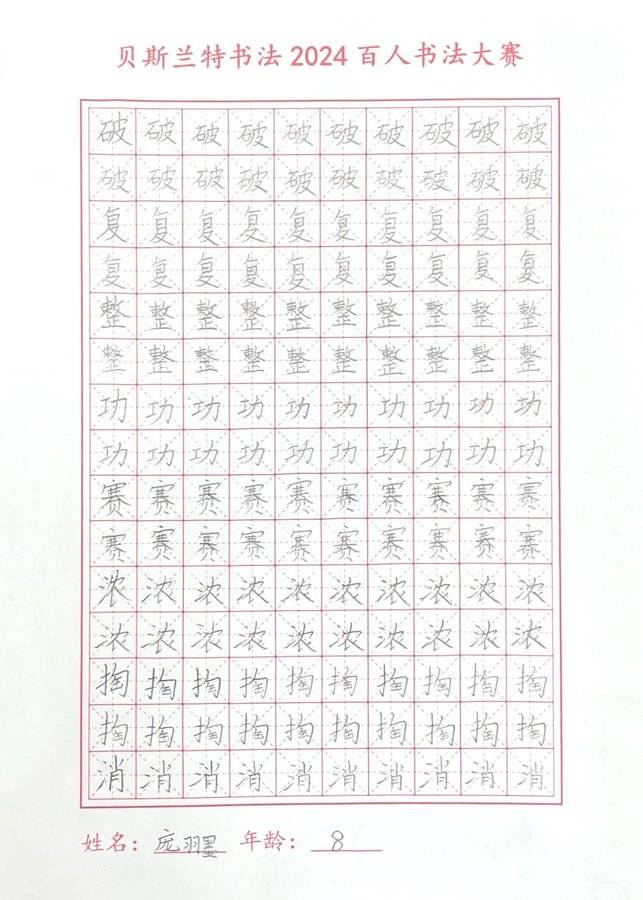 贝斯兰特书法2024百人书法大赛
破破破破破破破破破破
破破破破破破破破破破
复复复复复复复复复复
复复复复复复复复复复
整整整整整整整整整整
整整整整整整整整整整
功功功功功功功功功功
功功功功功功功功功功
赛赛赛赛赛赛赛赛赛赛
赛赛赛赛赛赛赛赛赛赛
浓浓浓浓浓浓浓浓浓浓
浓浓浓浓浓浓浓浓浓浓
掏掏掏掏掏掏掏掏掏掏
掏掏掏掏掏掏掏掏掏掏
消消消消消消消消消消
姓名：庞羽墨 年龄：8